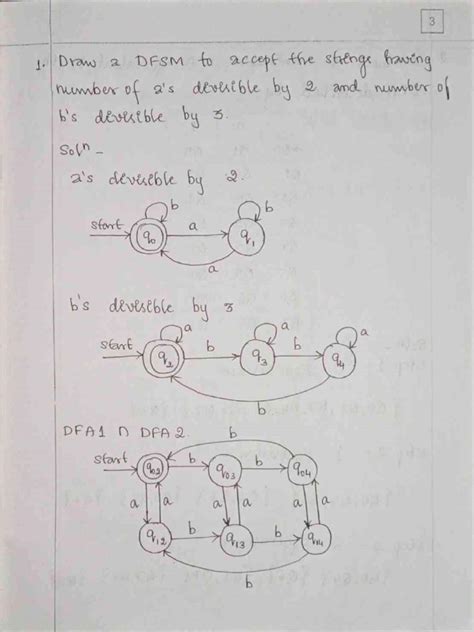 3
1. Draw a DFSM to accept the strings having
number of a's devisible by 2 and number of
b's devisible by 3.
Solⁿ -
a's devisible by 2.
b b
start q₀ a q₁
a
b's devisible by 3
a a a
start q₂ b q₃ b q₄
b
DFA1 ∩ DFA2.
b
start q₀₂ b q₀₃ b q₀₄
a a a a a a
q₁₂ b q₁₃ b q₁₄
b